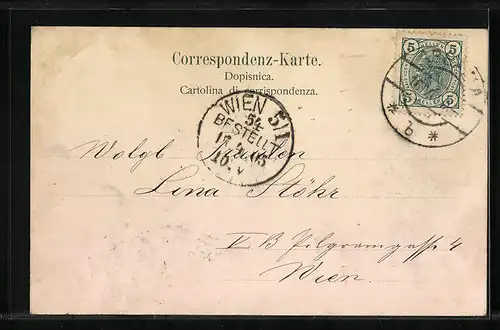 Correspondenz-Karte.
Dopisnica.
Cartolina di corrispondenza.
5 5
5 5
WIEN 5/1
54
BESTELLT
b
Wolgb. Fräulein
Lina Stöhr
V B Pilgramgasse 4
Wien.